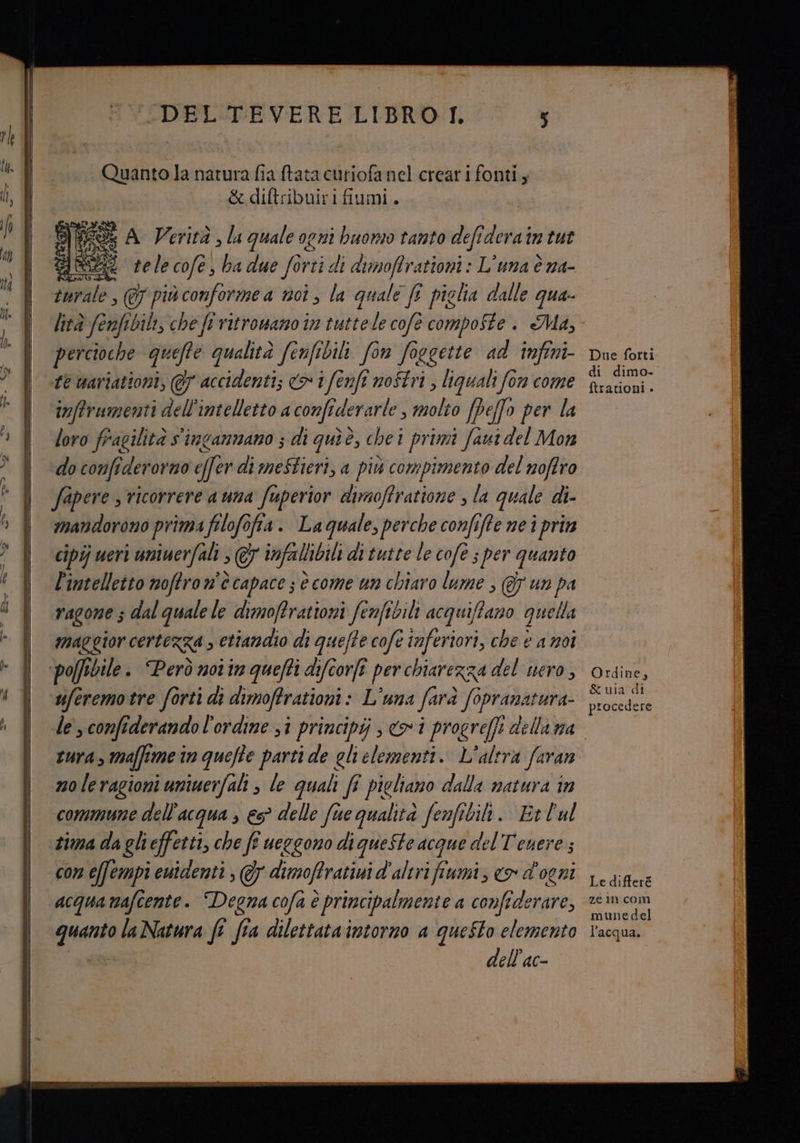 DEL TEVERE LIBRO I. 5
Quanto la natura ſia ſtata curioſa nel crear i fonti,
& diſtribuir i fiumi.
LA Verità, la quale ogni huomo tanto deſidera in tut
te le coſe, ha due ſorti di dimoſtrationi: L'una è na-
turale, & più conforme a noi, la quale ſi piglia dalle qua-
lità ſenſibili, che ſi ritrouano in tutte le coſe compoſte. Ma,
percioche queſte qualità ſenſibili ſon ſoggette ad infini-
te uariationi, & accidenti; & i ſenſi noſtri, liquali ſon come
inſtrumenti dell'intelletto a conſiderarle, molto ſpeſſo per la
loro fragilità s'ingannano; di quì è, che i primi ſaui del Mon
do conſiderorno eſſer di meſtieri, a più compimento del noſtro
ſapere, ricorrere a una ſuperior dimoſtratione, la quale di-
mandorono prima filoſofia. La quale, perche conſiſte ne i prin
cipij ueri uniuerſali, & infallibili di tutte le coſe; per quanto
l'intelletto noſtro n'è capace; è come un chiaro lume, & un pa
ragone; dal quale le dimoſtrationi ſenſibili acquiſtano quella
maggior certezza, etiandio di queſte coſe inferiori, che è a noi
poſſibile. Però noi in queſti diſcorſi per chiarezza del uero,
uſeremo tre ſorti di dimoſtrationi: L'una ſarà ſopranatura-
le, conſiderando l'ordine, i principij, & i progreſſi della na
tura, maſſime in queſte parti de gli elementi. L'altra ſaran
no le ragioni uniuerſali, le quali ſi pigliano dalla natura in
commune dell'acqua, & delle ſue qualità ſenſibili. Et l'ul
tima da gli effetti, che ſi ueggono di queſte acque del Teuere;
con eſſempi euidenti, & dimoſtratiui d'altri fiumi, & d'ogni
acqua naſcente. Degna coſa è principalmente a conſiderare,
quanto la Natura ſi ſia dilettata intorno a queſto elemento
dell'ac-
Due ſorti
di dimo-
ſtrationi.
Ordine,
& uia di
procedere
Le differẽ
ze in com
mune del
l'acqua.